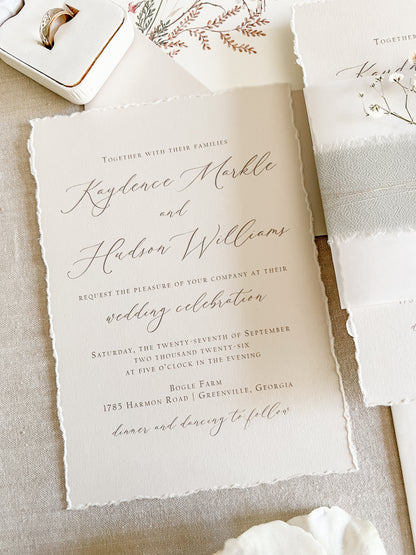 Together with their families
Kaydence Markle
and
Hudson Williams
request the pleasure of your company at their
wedding celebration
Saturday, the twenty-seventh of September
two thousand twenty-six
at five o'clock in the evening
Bogle Farm
1785 Harmon Road | Greenville, Georgia
dinner and dancing to follow
Together